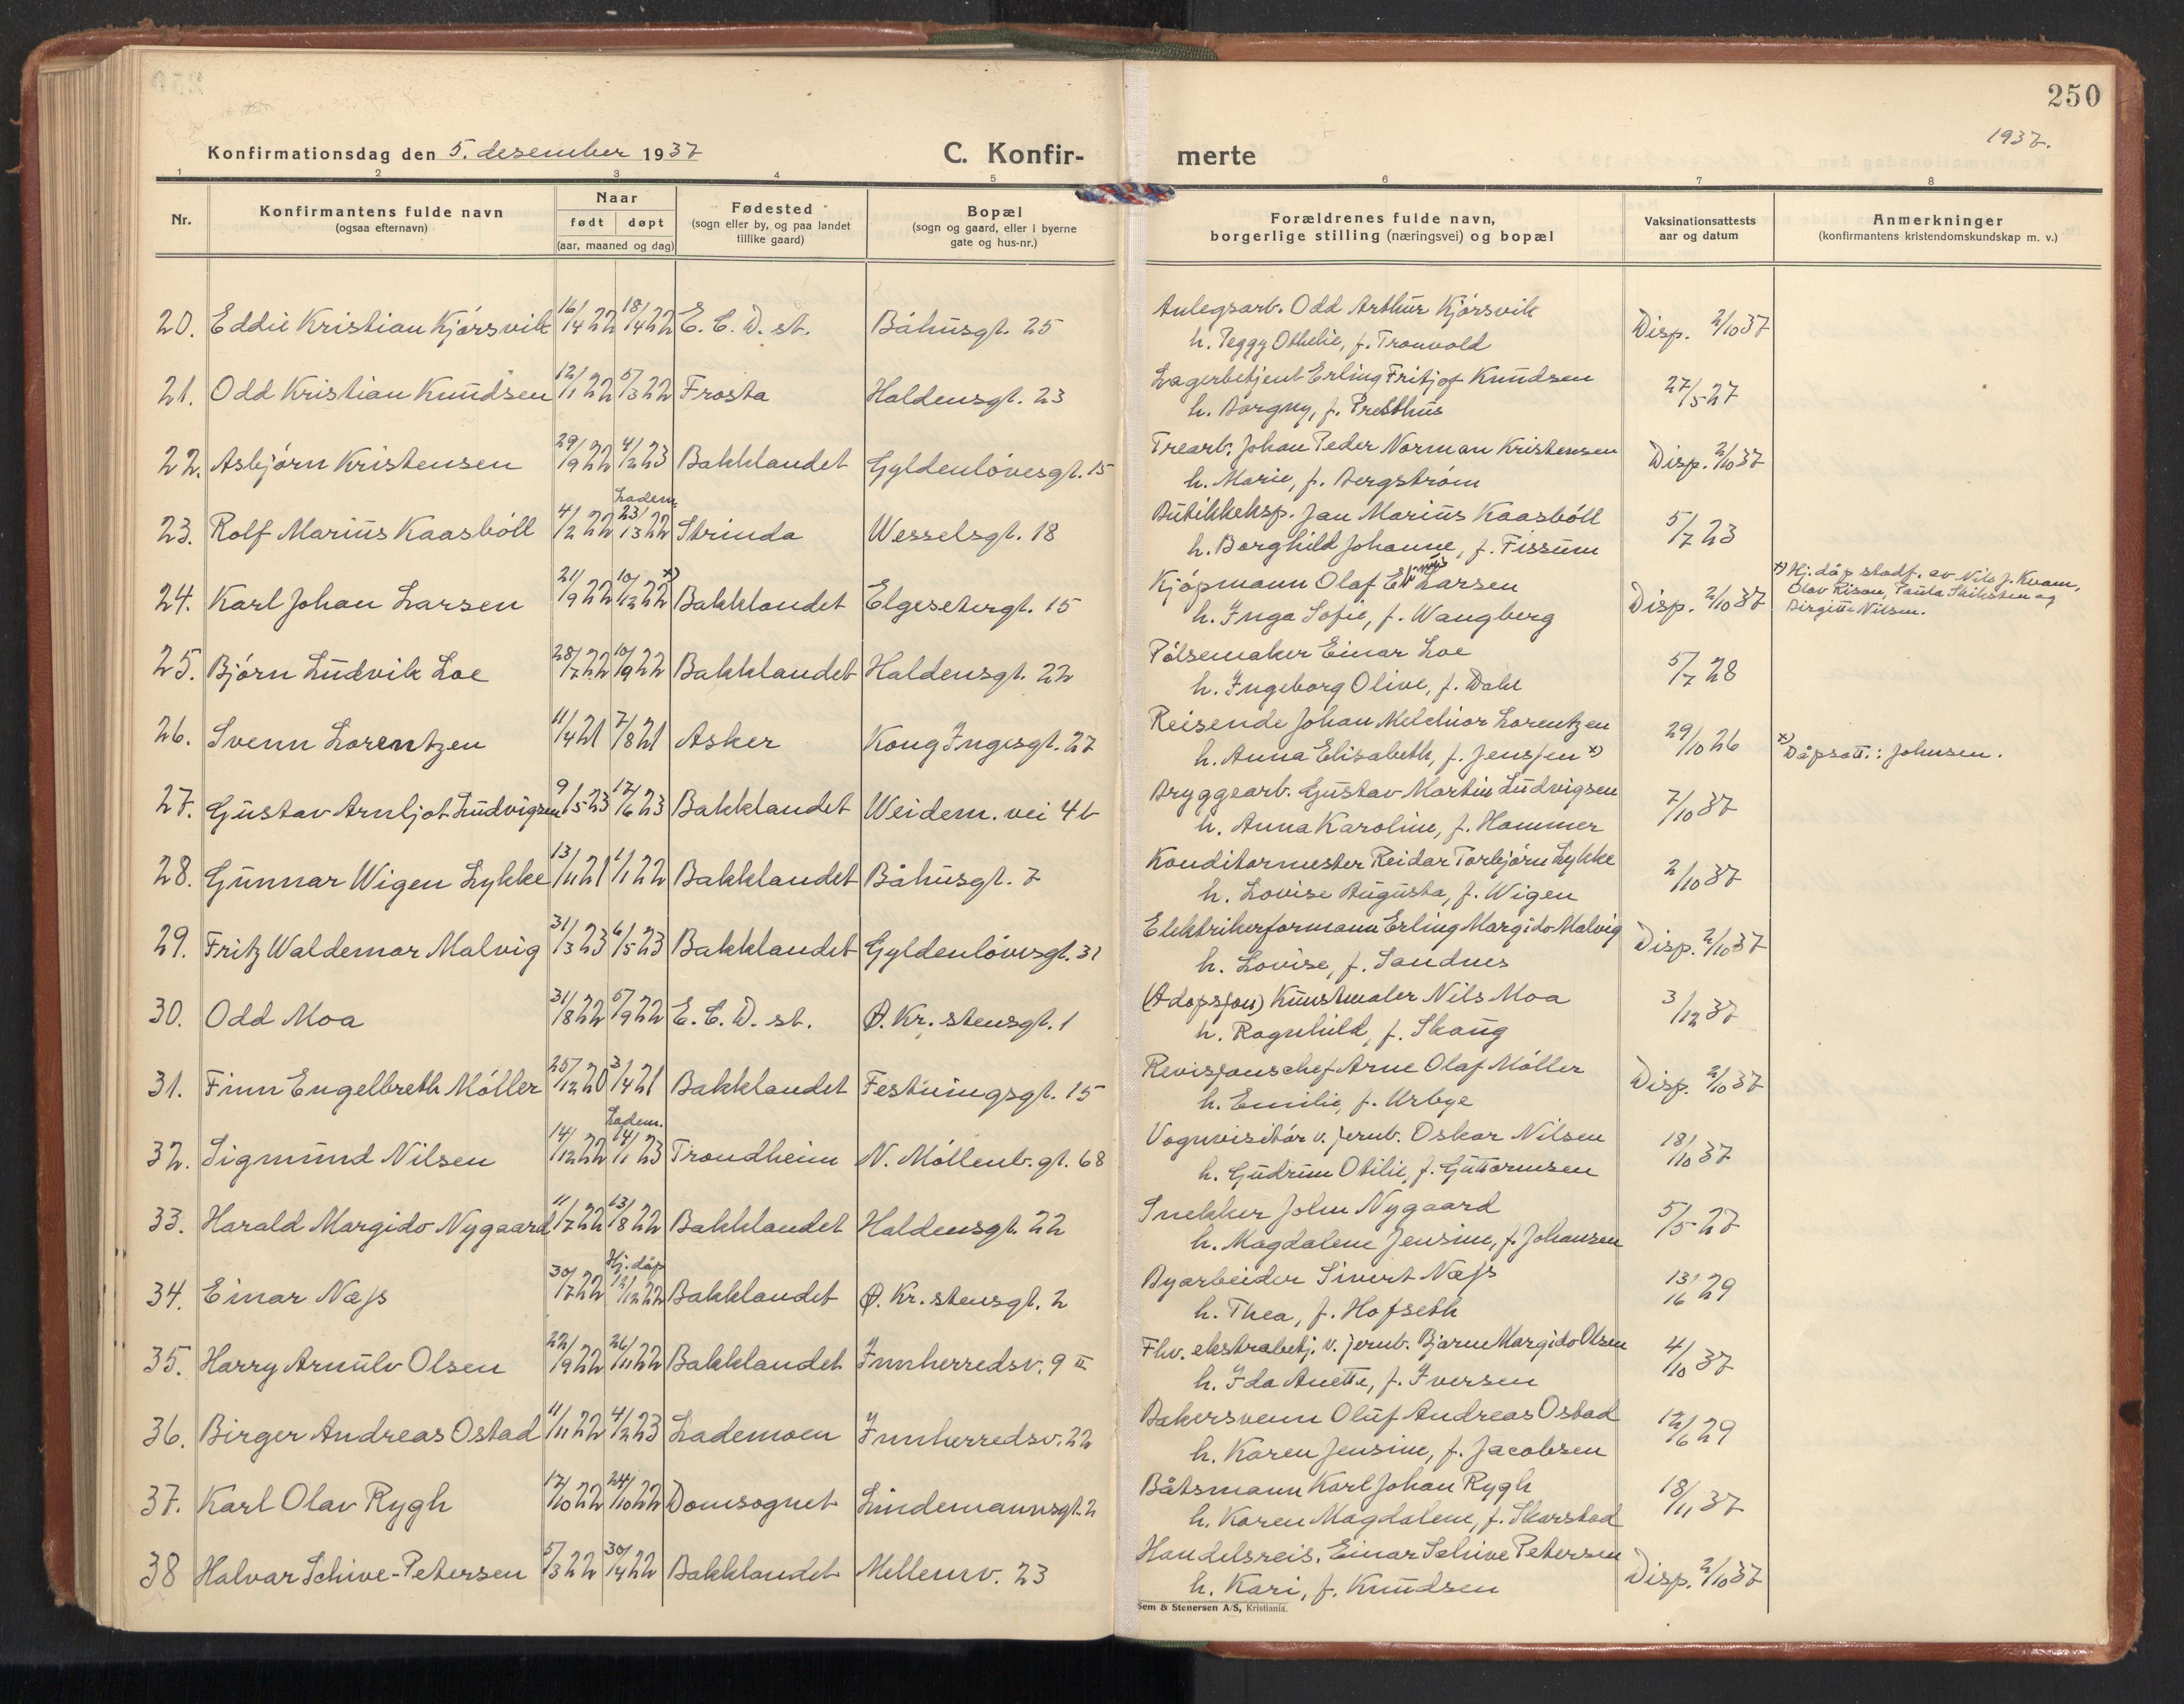 250
1937.
Konfirmationsdag den 5. desember 1937 C. Konfir- merte
1 2 3 4 5 6 7 8
Nr. Konfirmantens fulde navn (ogsaa efternavn) Naar født døpt (aar, maaned og dag) Fødested (sogn eller by, og paa landet tillike gaard) Bopæl (sogn og gaard, eller i byerne gate og hus-nr.) Forældrenes fulde navn, borgerlige stilling (næringsvei) og bopæl Vaksinationsattests aar og datum Anmerkninger (konfirmantens kristendomskundskap m. v.)
20. Eddie Kristian Kjørsvik 16/4 22 18/4 22 E. C. D. st. Båhusgt. 25 Anlegsarb. Odd Arthur Kjørsvik Disp. 2/10 37
h. Peggy Othelie, f. Tronvold
21. Odd Kristian Knudsen 12/1 22 5/3 22 Frosta Haldensgt. 23 Lagerbetjent Erling Fritjof Knudsen 27/5 27
h. Borgny, f. Presthus
22. Asbjørn Kristensen 29/9 22 4/2 23 Bakklandet Gyldenløvesgt. 15 Trearb. Johan Peder Norman Kristensen Disp. 2/10 37
h. Marie, f. Bergstrøm
23. Rolf Marius Kaasbøll 4/2 22 Ladem. 23/3 22 Strinda Wesselsgt. 18 Butikkeksp. Jan Marius Kaasbøll 5/7 23
h. Borghild Johanne, f. Fissum
24. Karl Johan Larsen 21/9 22 10/12 22 x) Bakklandet Elgesetergt. 15 Kjøpmann Olaf Larsen Disp. 2/10 37 x) Hj. dåp stadf. av Nils J. Kvam,
h. Inga Sofie, f. Wangberg Olav Risan, Paula Skiksten og
Birgitte Nilsen.
25. Bjørn Ludvik Loe 28/7 22 10/9 22 Bakklandet Haldensgt. 22 Pølsemaker Einar Loe 5/7 28
h. Ingeborg Olive, f. Dahl
26. Svenn Lorentzen 11/4 21 7/8 21 Asker Kong Ingesgt. 27 Reisende Johan Melchior Lorentzen 29/10 26
h. Anna Elisabeth, f. Jenssen x) x) Dåpsatt.: Johnsen.
27. Gustav Arnljot Ludvigsen 9/5 23 17/6 23 Bakklandet Weidem. vei 4b Bryggearb. Gustav Martin Ludvigsen 7/10 37
h. Anna Karoline, f. Hammer
28. Gunnar Wigen Lykke 13/11 21 1/1 22 Bakklandet Båhusgt. 7 Konditormester Reidar Torbjørn Lykke 2/10 37
h. Lovise Augusta, f. Wigen
29. Fritz Waldemar Malvig 31/3 23 6/5 23 Bakklandet Gyldenløvesgt. 31 Elektrikerformann Erling Margido Malvig Disp. 2/10 37
h. Lovise, f. Sandnes
30. Odd Moa 31/8 22 5/9 22 E. C. D. st. Ø. Kr. stensgt. 1 (Adopsjon) Kunstmaler Nils Moa 3/12 37
h. Ragnhild, f. Skaug
31. Finn Engelbreth Møller 25/12 20 3/4 21 Bakklandet Festningsgt. 15 Revisjonschef Arne Olaf Møller Disp. 2/10 37
h. Emilie, f. Urbye
32. Sigmund Nilsen 14/12 22 Ladem. 14/1 23 Trondheim N. Møllenb. gt. 68 Vognvisitør v. jernb. Oskar Nilsen 18/10 37
h. Gudrun Otilie, f. Guttormsen
33. Harald Margido Nygaard 11/7 22 13/8 22 Bakklandet Haldensgt. 22 Snekker John Nygaard 5/5 27
h. Magdalene Jensine, f. Johansen
34. Einar Næss 30/7 22 Hj. dåp 12/12 22 Bakklandet Ø. Kr. stensgt. 2 Byarbeider Sivert Næss 13/6 29
h. Thea, f. Hofseth
35. Harry Arnulv Olsen 22/9 22 26/11 22 Bakklandet Innherredsv. 9 II Fhv. ekstrabetj. v. jernb. Bjarne Margido Olsen 4/10 37
h. Ida Anette, f. Iversen
36. Birger Andreas Ostad 11/11 22 4/2 23 Lademoen Innherredsv. 22 Bakersvenn Oluf Andreas Ostad 12/6 29
h. Karen Jensine, f. Jacobsen
37. Karl Olav Rygh 17/10 22 24/10 22 Domsognet Lindemannsgt. 2 Båtsmann Karl Johan Rygh 18/11 37
h. Karen Magdalene, f. Skarstad
38 Halvar Schive-Petersen 5/3 22 30/4 22 Bakklandet Mellemv. 23 Handelsreis. Einar Schive Petersen Disp. 2/10 37
h. Kari, f. Knudsen
Sem & Stenersen A/S, Kristiania.